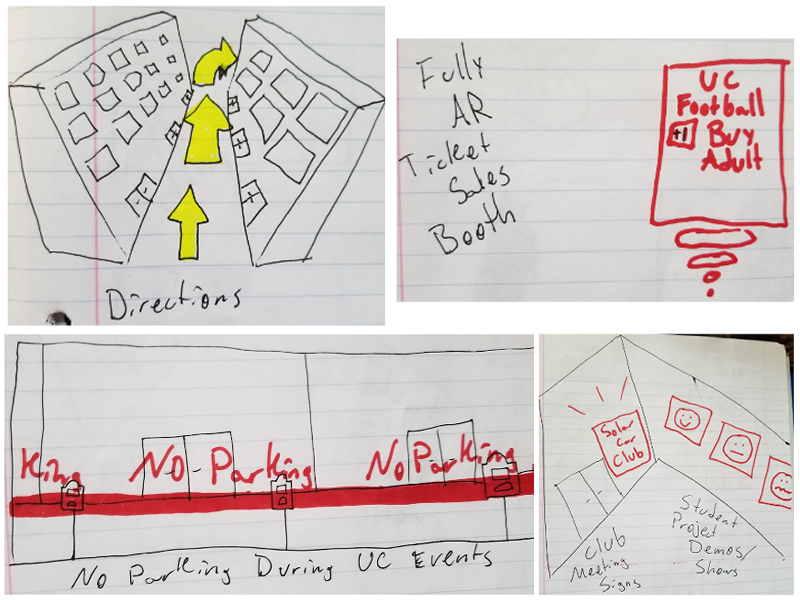 Directions
Fully
AR
Ticket
Sales
Booth
UC
Football
+1 Buy
Adult
King No Parking No Parking
No Parking During UC Events
Solar
Car
Club
Club
Meeting
Signs
Student
Project
Demos/
Shows